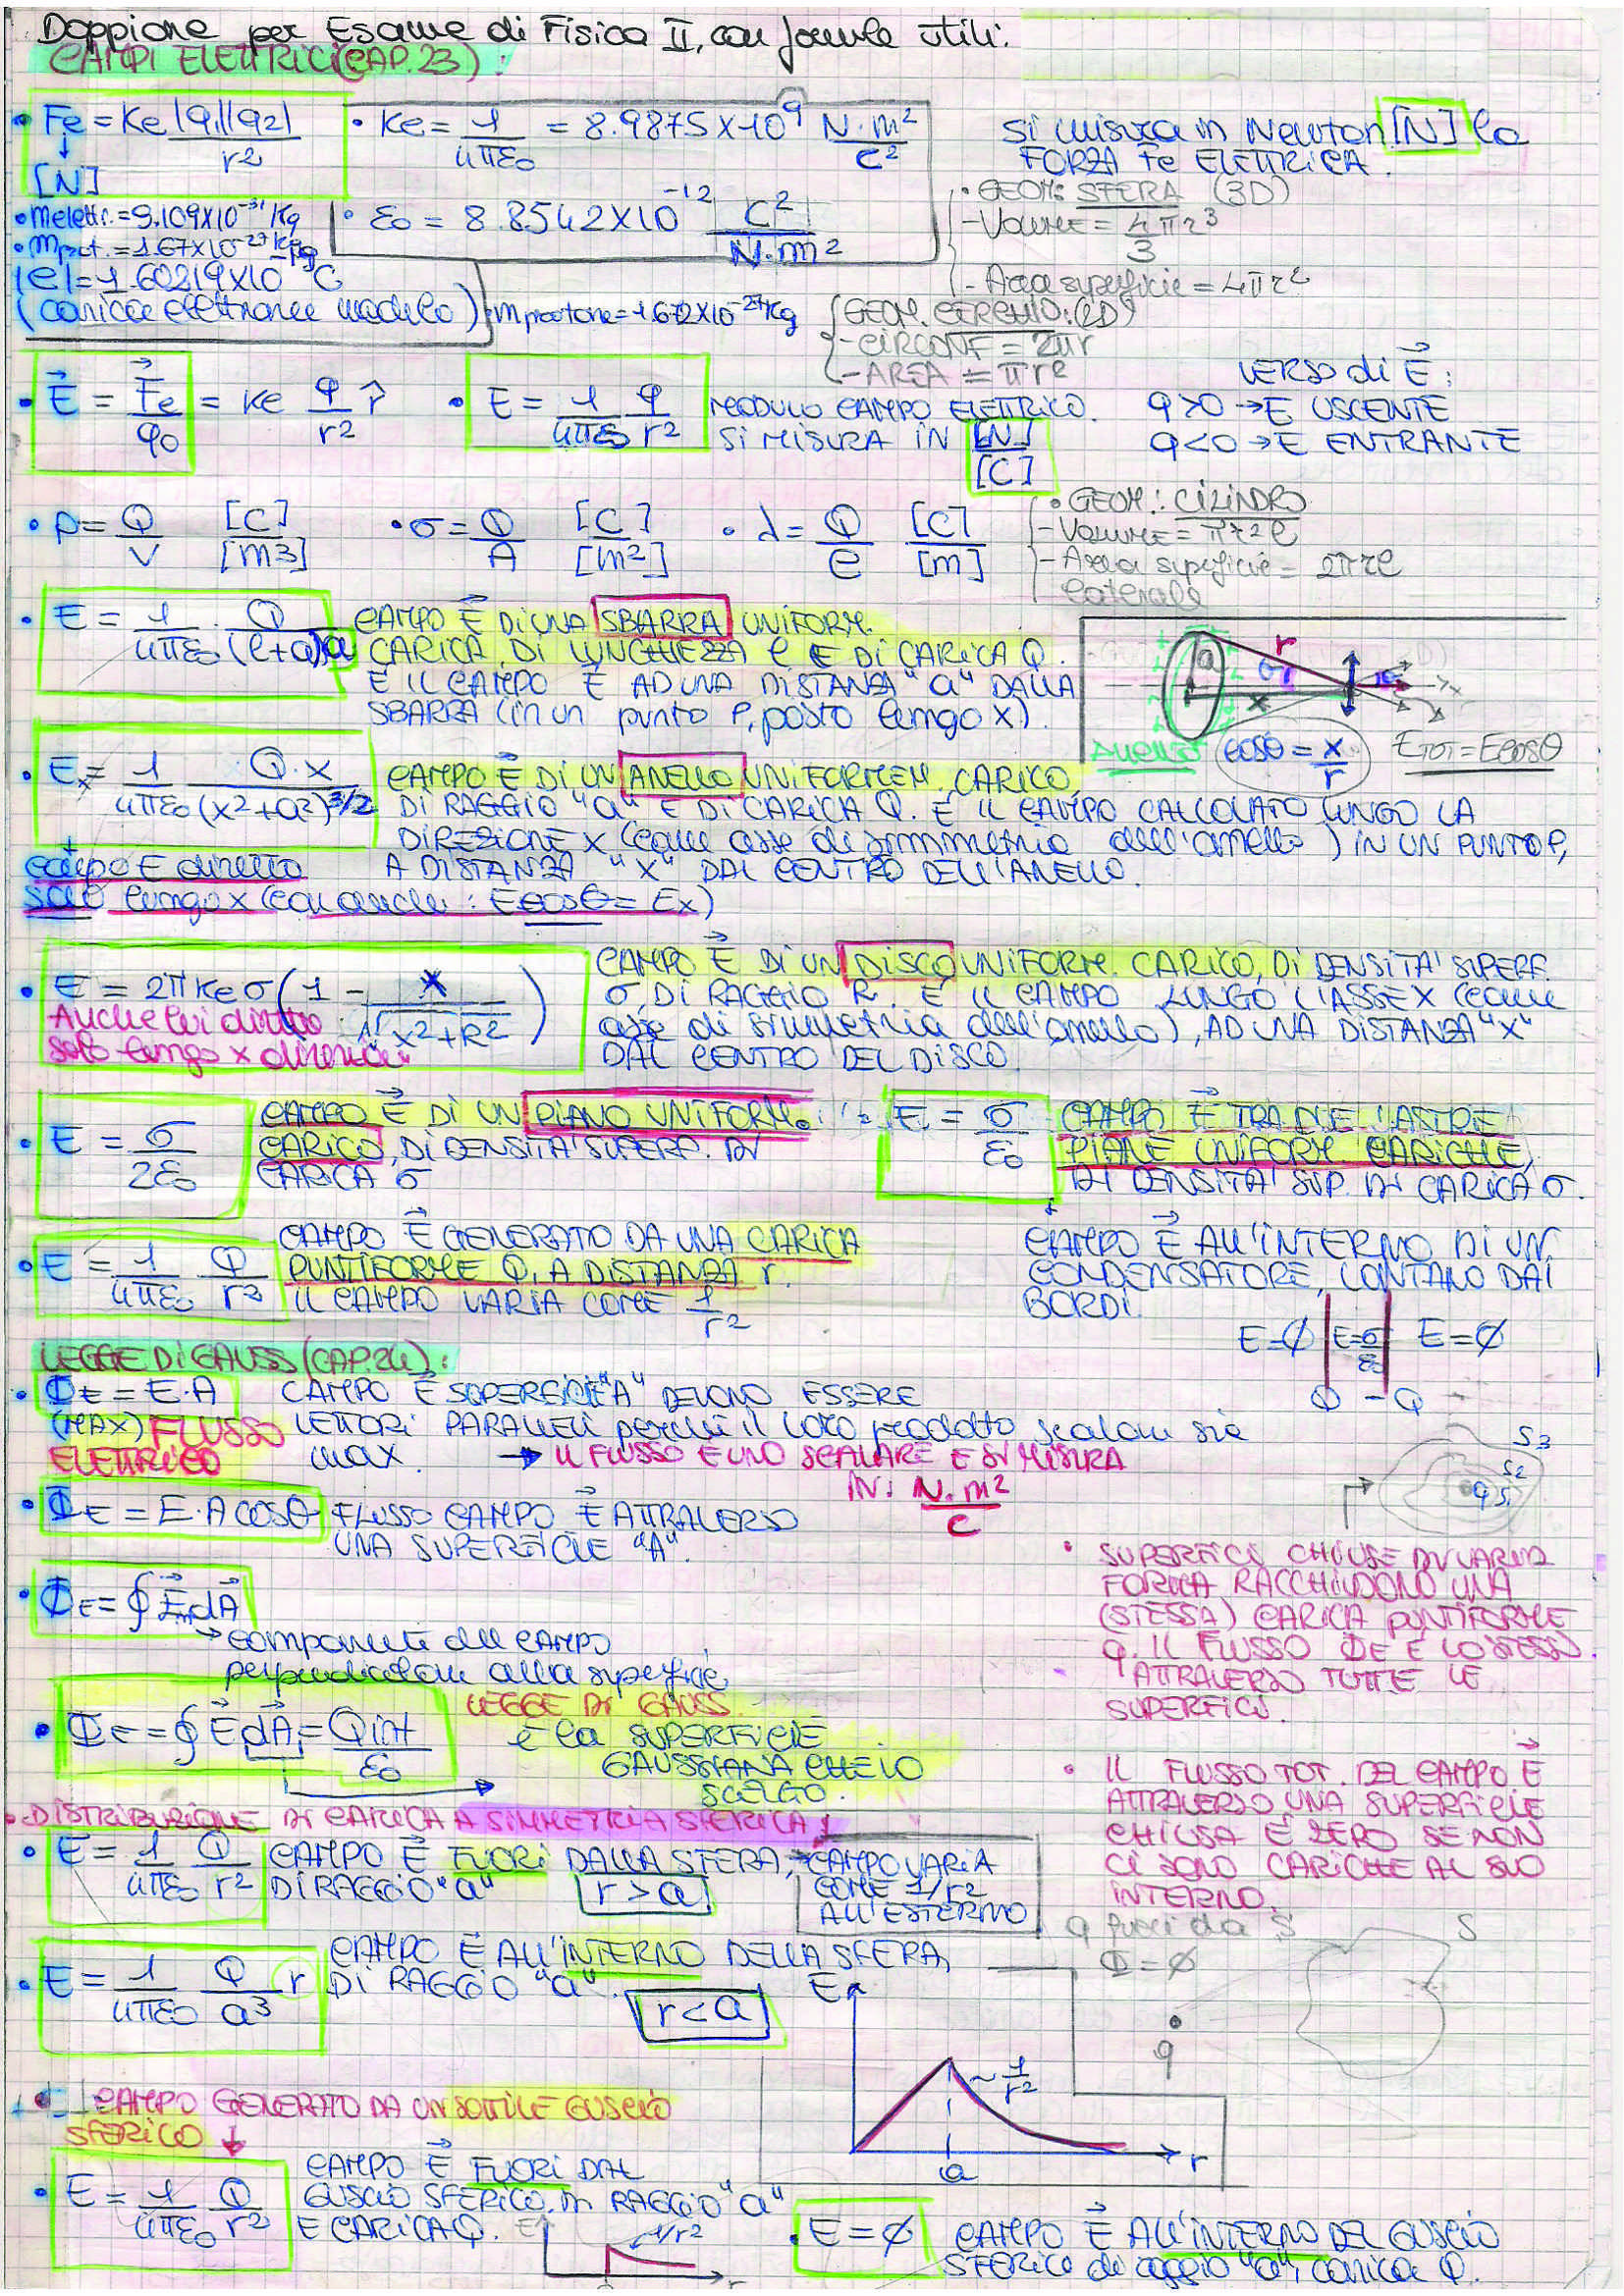 Doppione per Esame di Fisica II, con formule utili:
CAMPI ELETTRICI (CAP. 23):
• Fe = Ke |q1||q2| / r²
[N]
• Ke = 1/4πε0 = 8.9875 X 10⁹ N·m²/C²
si misura in Newton [N] la
FORZA Fe ELETTRICA.
• ε0 = 8.8542 X 10⁻¹² C²/N·m²
• melettr. = 9.109 X 10⁻³¹ Kg
• mprot. = 1.67 X 10⁻²⁷ Kg
|e| = 1.60219 X 10 C
(carica elettrone modulo)
mprotone = 1.672 X 10⁻²⁷ Kg
• GEOM: SFERA (3D)
- Volume = 4πr³/3
- Area superficie = 4πr²
GEOM. CERCHIO: (2D)
- CIRCONF = 2πr
- AREA = πr²
• E = Fe/q0 = Ke q/r² r̂
• E = 1/4πε0 q/r²
MODULO CAMPO ELETTRICO.
SI MISURA IN [N]/[C]
VERSO di E:
q>0 → E USCENTE
q<0 → E ENTRANTE
• ρ = Q/V [C]/[m3]
• σ = Q/A [C]/[m²]
• λ = Q/l [C]/[m]
• GEOM.: CILINDRO
- Volume = πr²l
- Area superficie = 2πrl
laterale
• E = 1/4πε0 · Q/(l+a)a
CAMPO E DI UNA SBARRA UNIFORM.
CARICA, DI LUNGHEZZA l E DI CARICA Q.
E IL CAMPO È AD UNA DISTANZA "a" DALLA
SBARRA (in un punto P, posto lungo x).
a r θ x
Anello
cosθ = x/r
ETOT = Ecosθ
• Ex = 1/4πε0 Q·x/(x²+a²)^3/2
CAMPO E DI UN ANELLO UNIFORMEM. CARICO,
DI RAGGIO "a" E DI CARICA Q. È IL CAMPO CALCOLATO LUNGO LA
DIREZIONE X (come asse di simmetria dell'anello) IN UN PUNTO P,
A DISTANZA "X" DAL CENTRO DELL'ANELLO.
campo E diretto
solo lungo x (con anche: Ecosθ = Ex)
• E = 2πKeσ(1 - x/√x²+R²)
Anche lui diretto
solo lungo x
CAMPO E DI UN DISCO UNIFORM. CARICO, DI DENSITA' SUPERF.
σ, DI RAGGIO R. È IL CAMPO LUNGO L'ASSE X (come
asse di simmetria dell'anello), AD UNA DISTANZA "X"
DAL CENTRO DEL DISCO.
• E = σ/2ε0
CAMPO E DI UN PIANO UNIFORM.
CARICO, DI DENSITA' SUPERF. DI
CARICA σ
• E = σ/ε0
CAMPO E TRA DUE LASTRE
PIANE UNIFORM. CARICHE,
DI DENSITA' SUP. DI CARICA σ.
CAMPO E ALL'INTERNO DI UN
CONDENSATORE, LONTANO DAI
BORDI.
E=Ø E=σ/ε0 E=Ø
Q -Q
• E = 1/4πε0 Q/r²
CAMPO E GENERATO DA UNA CARICA
PUNTIFORME Q, A DISTANZA r.
IL CAMPO VARIA COME 1/r²
LEGGE DI GAUSS (CAP. 24):
• ΦE = E·A
(MAX) FLUSSO
ELETTRICO
CAMPO E SUPERFICIE "A" DEVONO ESSERE
VETTORI PARALLELI perchè il loro prodotto scalare sia
max.
→ IL FLUSSO È UNO SCALARE E SI MISURA
IN: N·m²/C
• ΦE = E·A cosθ
FLUSSO CAMPO E ATTRAVERSO
UNA SUPERFICIE "A".
S3
S2
q S1
• ΦE = ∮ EndA
→ componente del CAMPO
perpendicolare alla superficie
• SUPERFICI CHIUSE DI VARIA
FORMA RACCHIUDONO UNA
(STESSA) CARICA PUNTIFORME
q. IL FLUSSO ΦE È LO STESSO
ATTRAVERSO TUTTE LE
SUPERFICI.
• ΦE = ∮ EdA = Qint/ε0
LEGGE DI GAUSS
è la SUPERFICIE
GAUSSIANA CHE IO
SCELGO.
• IL FLUSSO TOT. DEL CAMPO E
ATTRAVERSO UNA SUPERFICIE
CHIUSA È ZERO SE NON
CI SONO CARICHE AL SUO
INTERNO.
q fuori da S
Φ = Ø
S
q
• DISTRIBUZIONE DI CARICA A SIMMETRIA SFERICA:
• E = 1/4πε0 Q/r²
CAMPO E FUORI DALLA SFERA,
DI RAGGIO "a" r > a
CAMPO VARIA
COME 1/r²
ALL'ESTERNO
• E = 1/4πε0 Q/a³ r
CAMPO E ALL'INTERNO DELLA SFERA,
DI RAGGIO "a". r < a
E
~1/r²
a r
CAMPO GENERATO DA UN SOTTILE GUSCIO
SFERICO ↓
• E = 1/4πε0 Q/r²
CAMPO E FUORI DAL
GUSCIO SFERICO, DI RAGGIO "a"
E CARICA Q.
E 1/r²
r
• E = Ø
CAMPO E ALL'INTERNO DEL GUSCIO
SFERICO di raggio "a", carica Q.